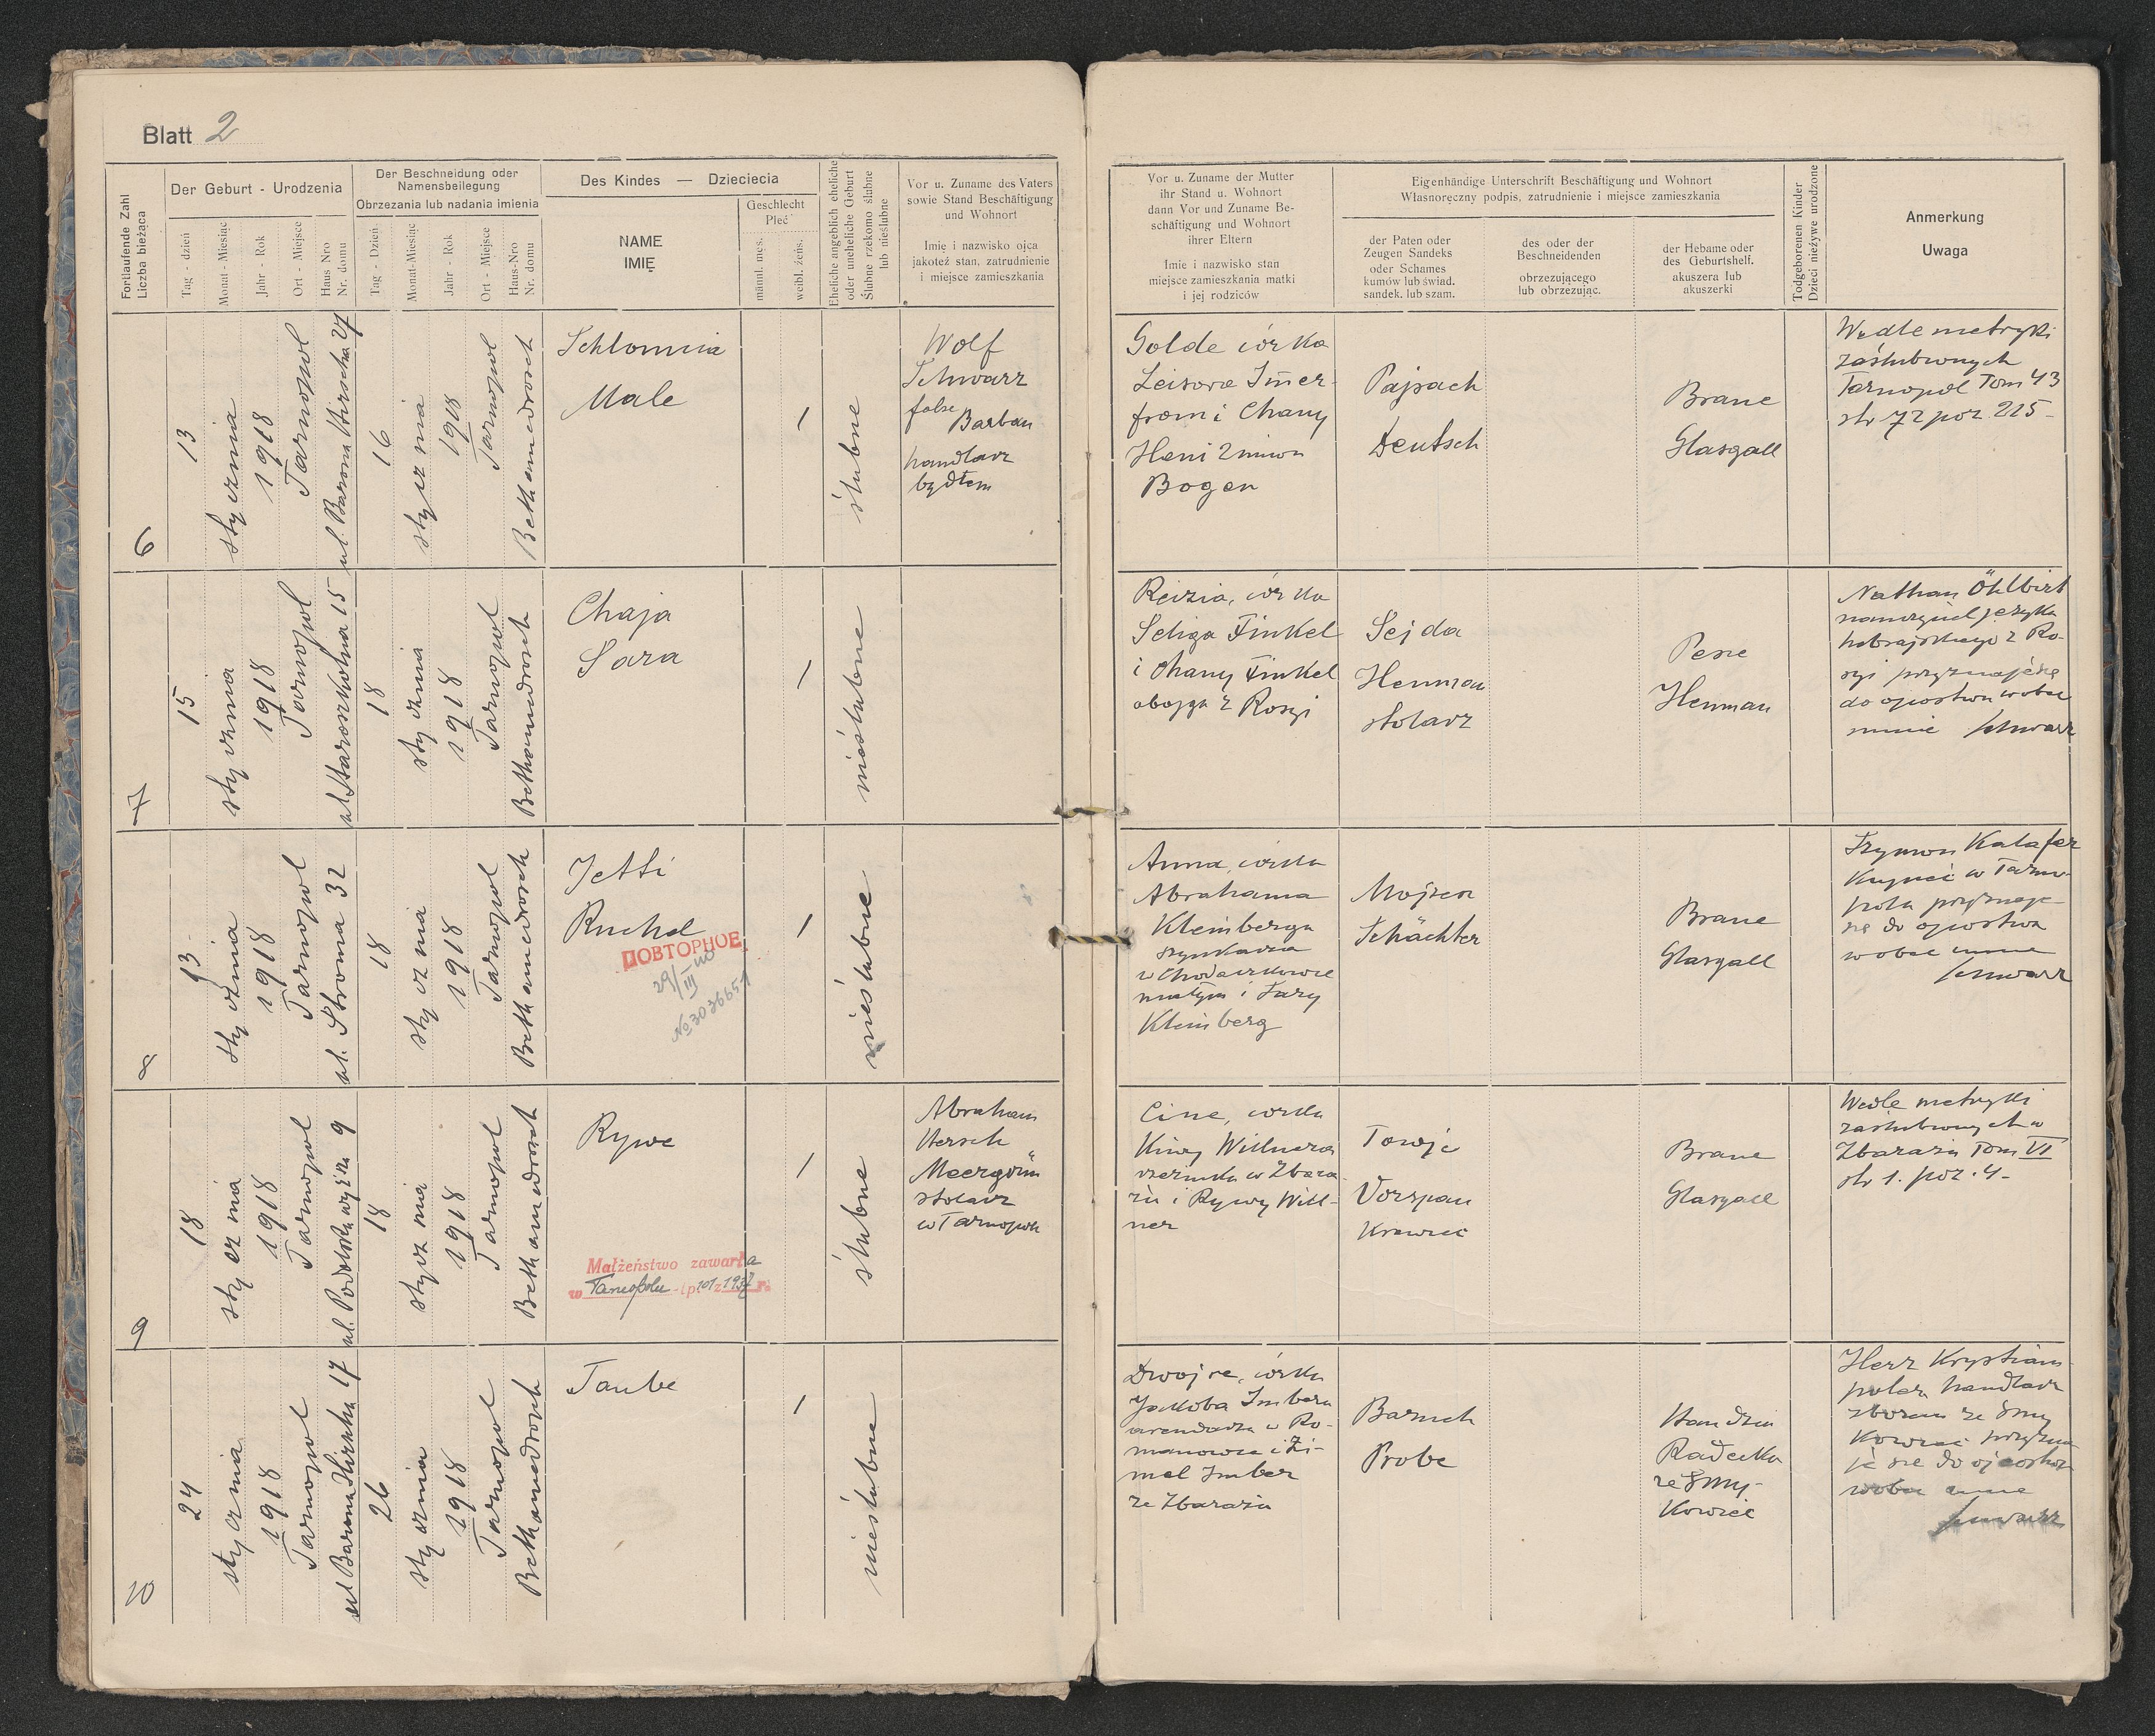 Blatt 2
Fortlaufende Zahl
Liczba bieżąca
Der Geburt - Urodzenia
Tag - dzień
Monat - Miesiąc
Jahr - Rok
Ort - Miejsce
Haus Nro
Nr. domu
Der Beschneidung oder
Namensbeilegung
Obrzezania lub nadania imienia
Tag - Dzień
Monat-Miesiąc
Jahr - Rok
Ort - Miejsce
Haus-Nro
Nr. domu
Des Kindes — Dzieciecia
NAME
IMIĘ
Geschlecht
Płeć
männl. męs.
weibl. żeńs.
Eheliche angeblich eheliche
oder uneheliche Geburt
Ślubne rzekomo ślubne
lub nieślubne
Vor u. Zuname des Vaters
sowie Stand Beschäftigung
und Wohnort
Imię i nazwisko ojca
jakoteż stan, zatrudnienie
i miejsce zamieszkania
Vor u. Zuname der Mutter
ihr Stand u. Wohnort
dann Vor und Zuname Be-
schäftigung und Wohnort
ihrer Eltern
Imię i nazwisko stan
miejsce zamieszkania matki
i jej rodziców
Eigenhändige Unterschrift Beschäftigung und Wohnort
Własnoręczny podpis, zatrudnienie i miejsce zamieszkania
der Paten oder
Zeugen Sandeks
oder Schames
kumów lub świad.
sandek. lub szam.
des oder der
Beschneidenden
obrzezującego
lub obrzezując.
der Hebame oder
des Geburtshelf.
akuszera lub
akuszerki
Todtgeborenen Kinder
Dzieci nieżywe urodzone
Anmerkung
Uwaga
6
13
stycznia
1918
Tarnopol
ul. Barona Hirscha 27
16
stycznia
1918
Tarnopol
Bethamedrosch
Schlomcia
Male
1
ślubne
Wolf
Schwarz
false Barban
handlarz
bydłem
Golde córka
Leisora Imer-
from i Chany
Heni 2 imion
Bogen
Pajsach
Deutsch
Brane
Glasgall
Wedle metryki
zaślubionych
Tarnopol Tom 43
str 72 poz. 215-
7
15
stycznia
1918
Tarnopol
ul. Staroszkolna 15
18
stycznia
1918
Tarnopol
Bethamedrosch
Chaja
Sara
1
nieślubne
Reizia, córka
Seliga Finkel
i Chany Finkel
oboje z Rosyi
Sejda
Henman
stolarz
Pesie
Henman
Nathan Öhlbirt
nauczyciel języka
hebrajskiego z Ro-
syi przyznaje się
do ojcostwa wobec
mnie Schwarz
8
13
stycznia
1918
Tarnopol
ul. Stroma 32
18
stycznia
1918
Tarnopol
Bethamedrosch
Jetti
Ruchel
ПОВТОРНОЕ
29/III 40
№ 3036651
1
nieślubne
Anna, córka
Abrahama
Kleinberga
szynkarza
w Chodaczkowie
małym i Sary
Kleinberg
Mojżesz
Schächter
Brane
Glasgall
Szymon Katafer
Kupiec w Tarno-
polu przyznaje
się do ojcostwa
wobec mnie
Schwarz
9
18
stycznia
1918
Tarnopol
ul. Podolska wyższa 9
18
stycznia
1918
Tarnopol
Bethamedrosch
Rywe
Małżeństwo zawarte
w Tarnopolu lp 101 z 1937 r.
1
ślubne
Abraham
Hersch
Meergrün
stolarz
w Tarnopolu
Cine, córka
Kiwy Willnera
w Zbara-
żu i Rywy Will-
ner
Towje
Vorspan
Krawiec
Brane
Glasgall
Wedle metryki
zaślubionych w
Zbarażu Tom VI
str 1. poz. 4-
10
24
stycznia
1918
Tarnopol
ul. Barona Hirscha 17
26
stycznia
1918
Tarnopol
Bethamedrosch
Taube
1
nieślubne
Dwojre, córka
Jakóba Imbera
arendarza w Ro-
manowce i Zi-
mel Imber
ze Zbaraża
Baruch
Probe
Handzia
Radecka
ze Smy-
kowiec
Herz Krystiam-
poler handlarz
zbożem ze Smy
kowiec przyzna
je się do ojcostwa
wobec mnie
Schwarz